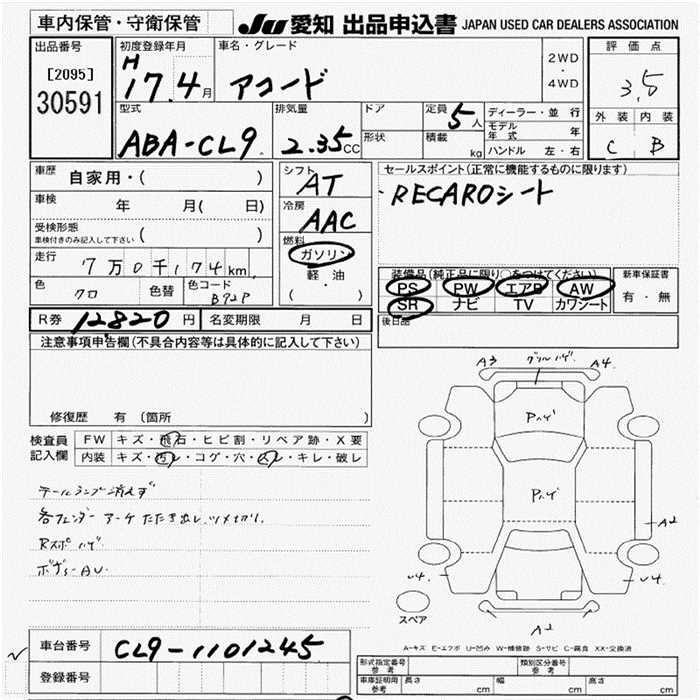 車内保管・守衛保管 JU 愛知 出品申込書 JAPAN USED CAR DEALERS ASSOCIATION
出品番号 初度登録年月 車名・グレード 2WD・4WD 評価点
[2095] 30591 H17.4月 アコード 3.5
型式 排気量 ドア 定員 5人 ディーラー・並行 外装 内装
ABA-CL9 2.35CC 形状 積載 kg モデル年式 年 C B
ハンドル 左・右
車歴 自家用・( ) シフト AT セールスポイント(正常に機能するものに限ります)
車検 年 月( 日) 冷房 AAC RECAROシート
受検形態 車検付きのみ記入して下さい ( )
走行 7万0千174km 燃料 ガソリン 軽・油 ( )
装備品(純正品に限り○をつけてください) 新車保証書
色 クロ 色替 色コード B92P PS PW エアB AW 有・無
SR ナビ TV カワシート
R券 12820円 名変期限 月 日 後日品
注意事項申告欄(不具合内容等は具体的に記入して下さい)
A3 グリルハゲ A4
Pハゲ
修復歴 有 (箇所 )
検査員記入欄 FW キズ・飛石・ヒビ割・リペア跡・X要
内装 キズ・汚レ・コゲ・穴・スレ・キレ・破レ
Pハゲ
テールランプ消えず
各フェンダーアーチ たたき出し、ツメ切り、
A2
Rスポ ハゲ
ボディーAU.
U4 U4
スペア A2
A-キズ E-エクボ U-凹み W-補修跡 S-サビ C-腐食 XX-交換済
車台番号 CL9-1101245
登録番号
形式指定番号 参考 類別区分番号 参考
車庫証明用 参考 長さ cm 幅 cm 高さ cm